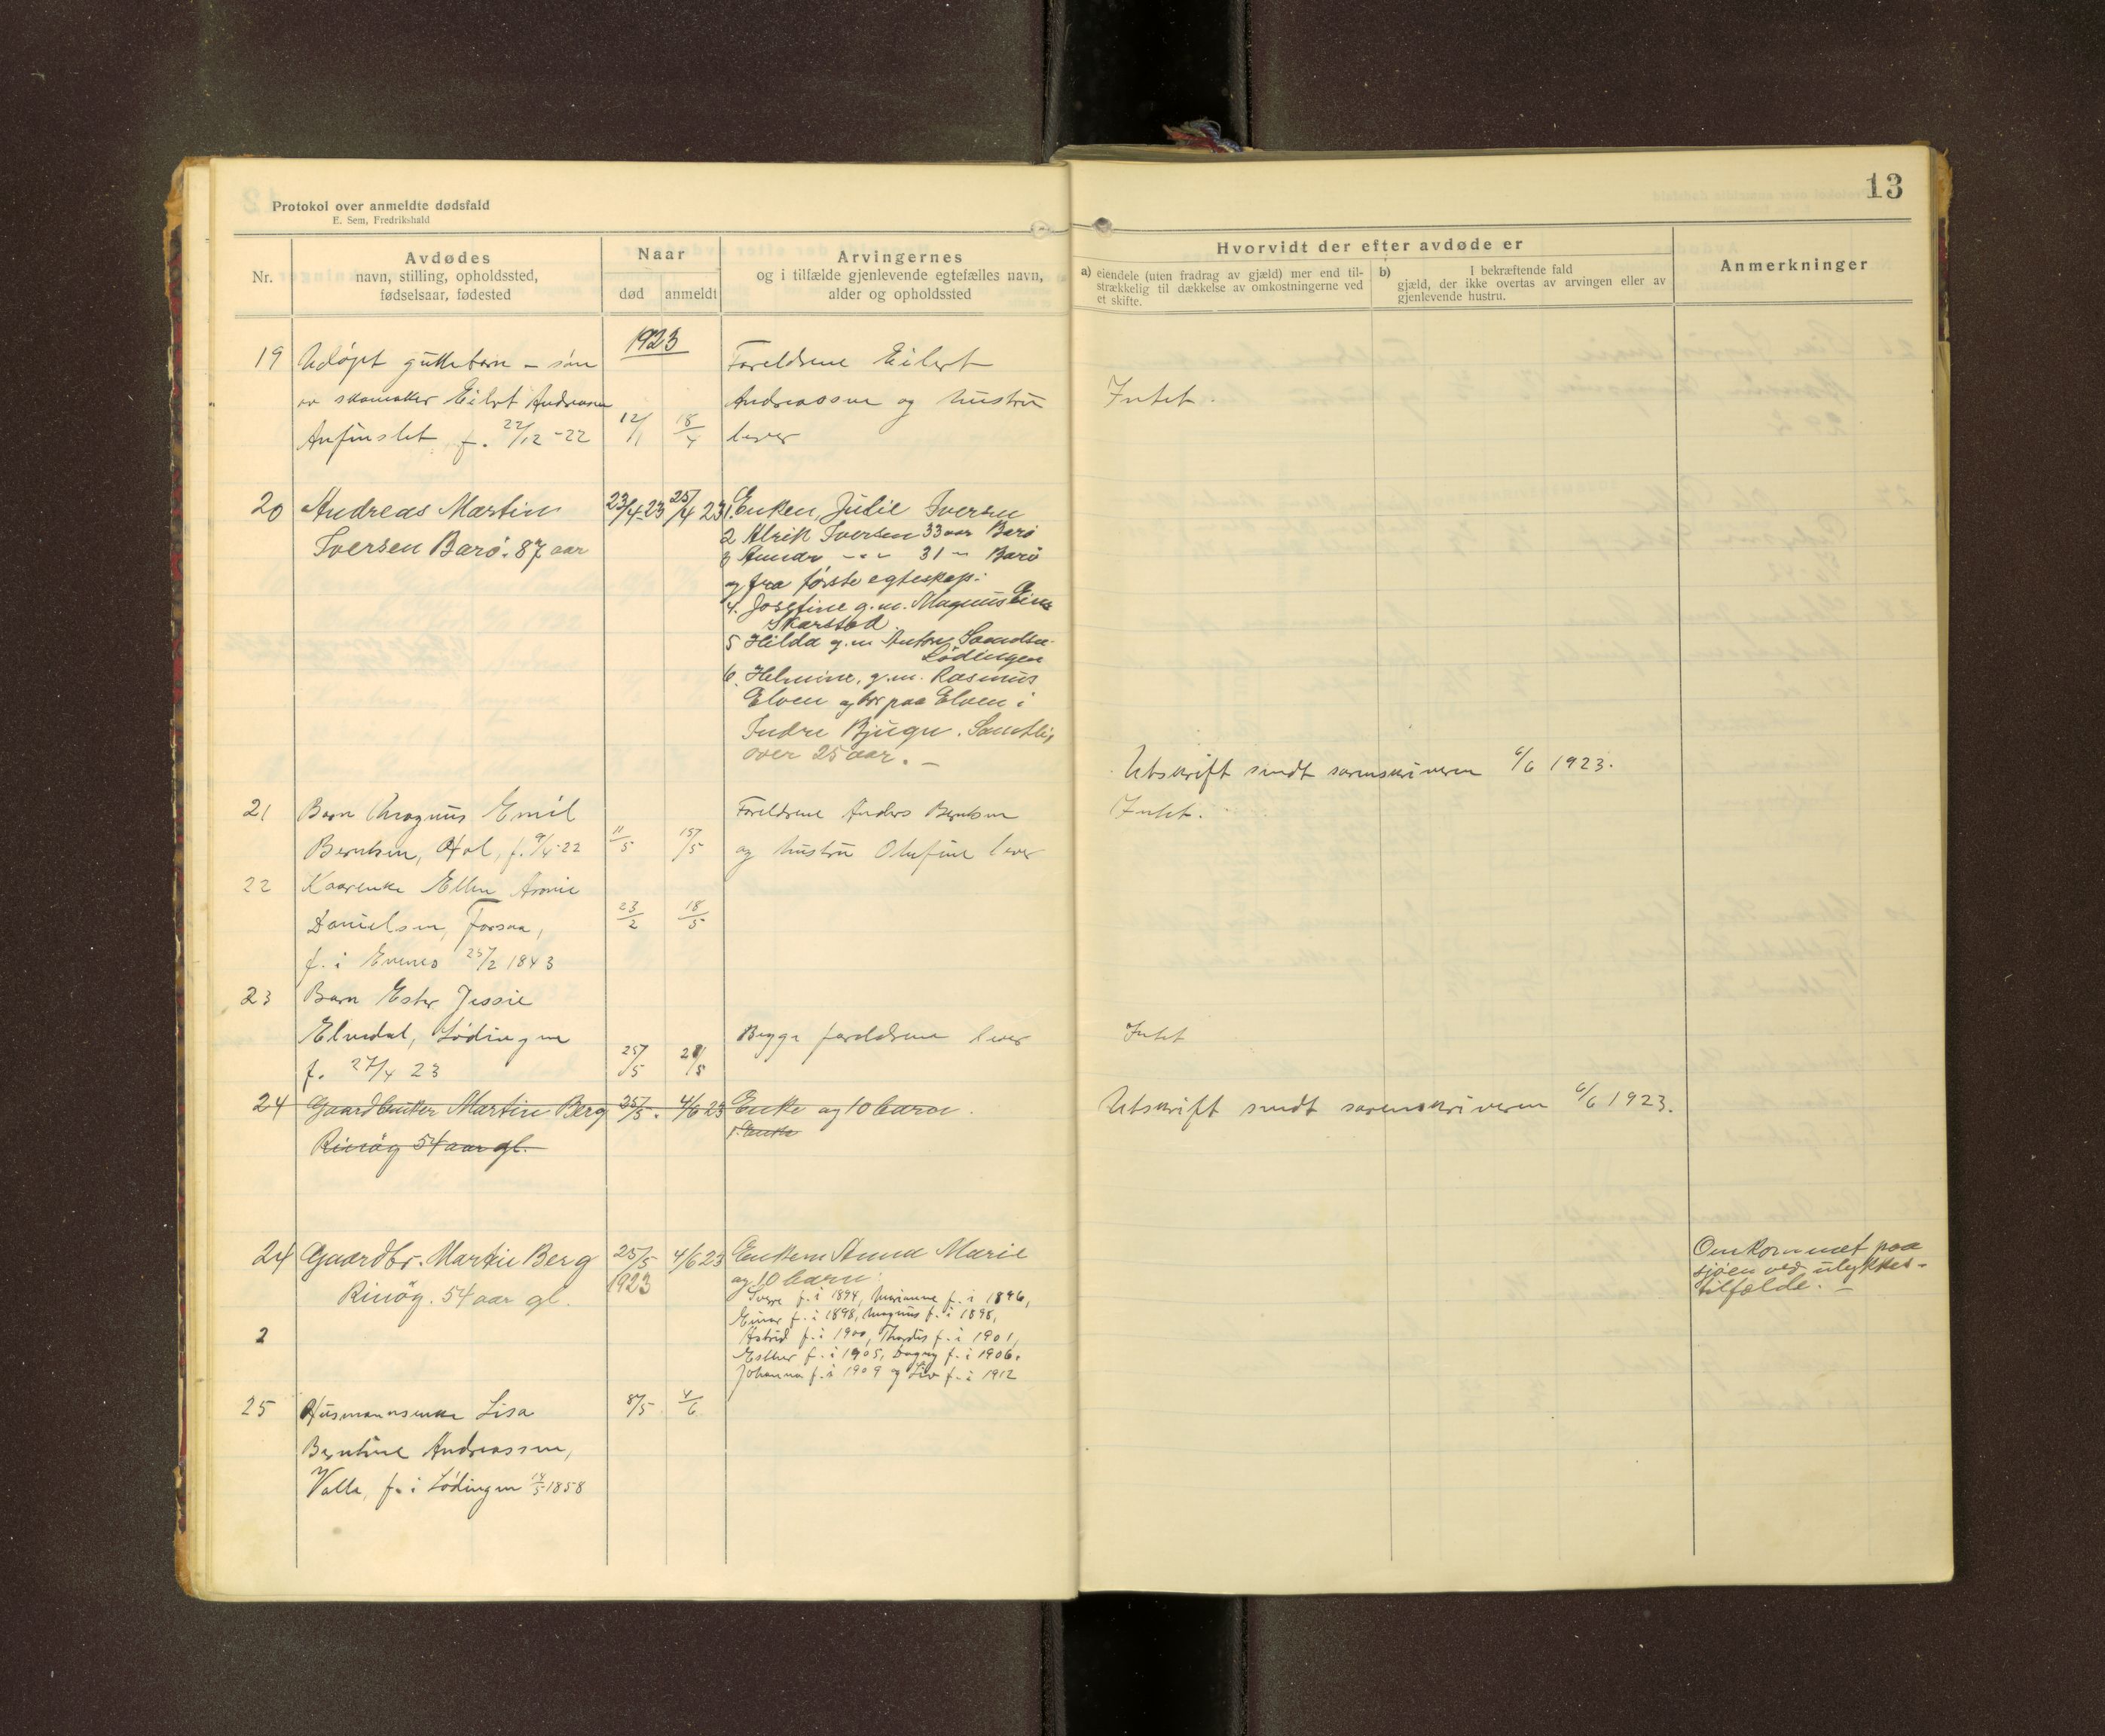 13
Protokol over anmeldte dødsfald
E. Sem, Fredrikshald
Nr.
Avdødes
navn, stilling, opholdssted,
fødselsaar, fødested
Naar
død
anmeldt
Arvingernes
og i tilfælde gjenlevende egtefælles navn,
alder og opholdssted
Hvorvidt der efter avdøde er
a) eiendele (uten fradrag av gjæld) mer end til-
strækkelig til dækkelse av omkostningerne ved
et skifte.
b) I bekræftende fald
gjæld, der ikke overtas av arvingen eller av
gjenlevende hustru.
Anmerkninger
1923
19 Udøpt guttebarn - søn Foreldrene Eilert
av skomaker Eilert Andreassen Andreassen og hustru Intet.
Anfinslet, f. 22/12-22 12/1 18/4 lever
20 Andreas Martin 23/4-23 25/4 23 1. Enken, Julie Iversen
Iversen Barø. 87 aar 2 Alrik Iversen 33 aar Barø
3 31 " Barø
og fra første egteskap:
4. Josefine g.m. Magnus
Skarstad
5 Hilda g.m. Anton
Lødingen
6. Helmine, g.m. Rasmus
Elven og bor paa Elven i
Indre Bjugn. Samtlig
over 25 aar. -
Utskrift sendt sorenskriveren 6/6 1923.
21 Barn Magnus Emil Foreldrene Anders Berntsen Intet.
Berntsen, Hol, f. 9/4-22 11/5 15/5 og hustru Olufine lever
22 Kaarenke Ellen Aronie
Danielsen, Forsaa, 23/2 18/5
f. i Evenes 25/2 1843
23 Barn Ester Jessie
Elvedal, Lødingen Begge foreldrene lever Intet
f. 27/4 23 25/5 28/5
24 Gaardbruker Martin Berg 25/5. 4/6 23 Enke og 10 barn. Utskrift sendt sorenskriveren 6/6 1923.
Rinøy 54 aar gl. 1. Enke
24 Gaardbr. Martin Berg 25/5 4/6 23 Enken Anna Marie Omkommet paa
1923 og 10 barn: sjøen ved ulykkes-
Rinøy. 54 aar gl. Sverre f. i 1894, Marianne f. i 1896, tilfælde. -
Einar f. i 1898, Magnus f. i 1898,
2 Astrid f. i 1900, Thordis f. i 1901,
Esther f. i 1905, Dagny f. i 1906,
Johanna f. i 1909 og Liv f. i 1912
25 Husmannsenke Lisa 8/5 4/6
Berntine Andreassen,
Valle, f. i Lødingen 18/5 1858